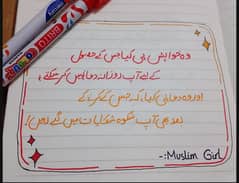 BRITE
وہ خواہش ہی کیا جس کے حصول
کے لیے آپ روزانہ دعا نہیں کر سکتے،
اور وہ دعا ہی کیا، کہ جس کے کرنے کے
بعد بھی آپ شکوہ شکایات میں پڑے رہیں!
-:Muslim Girl